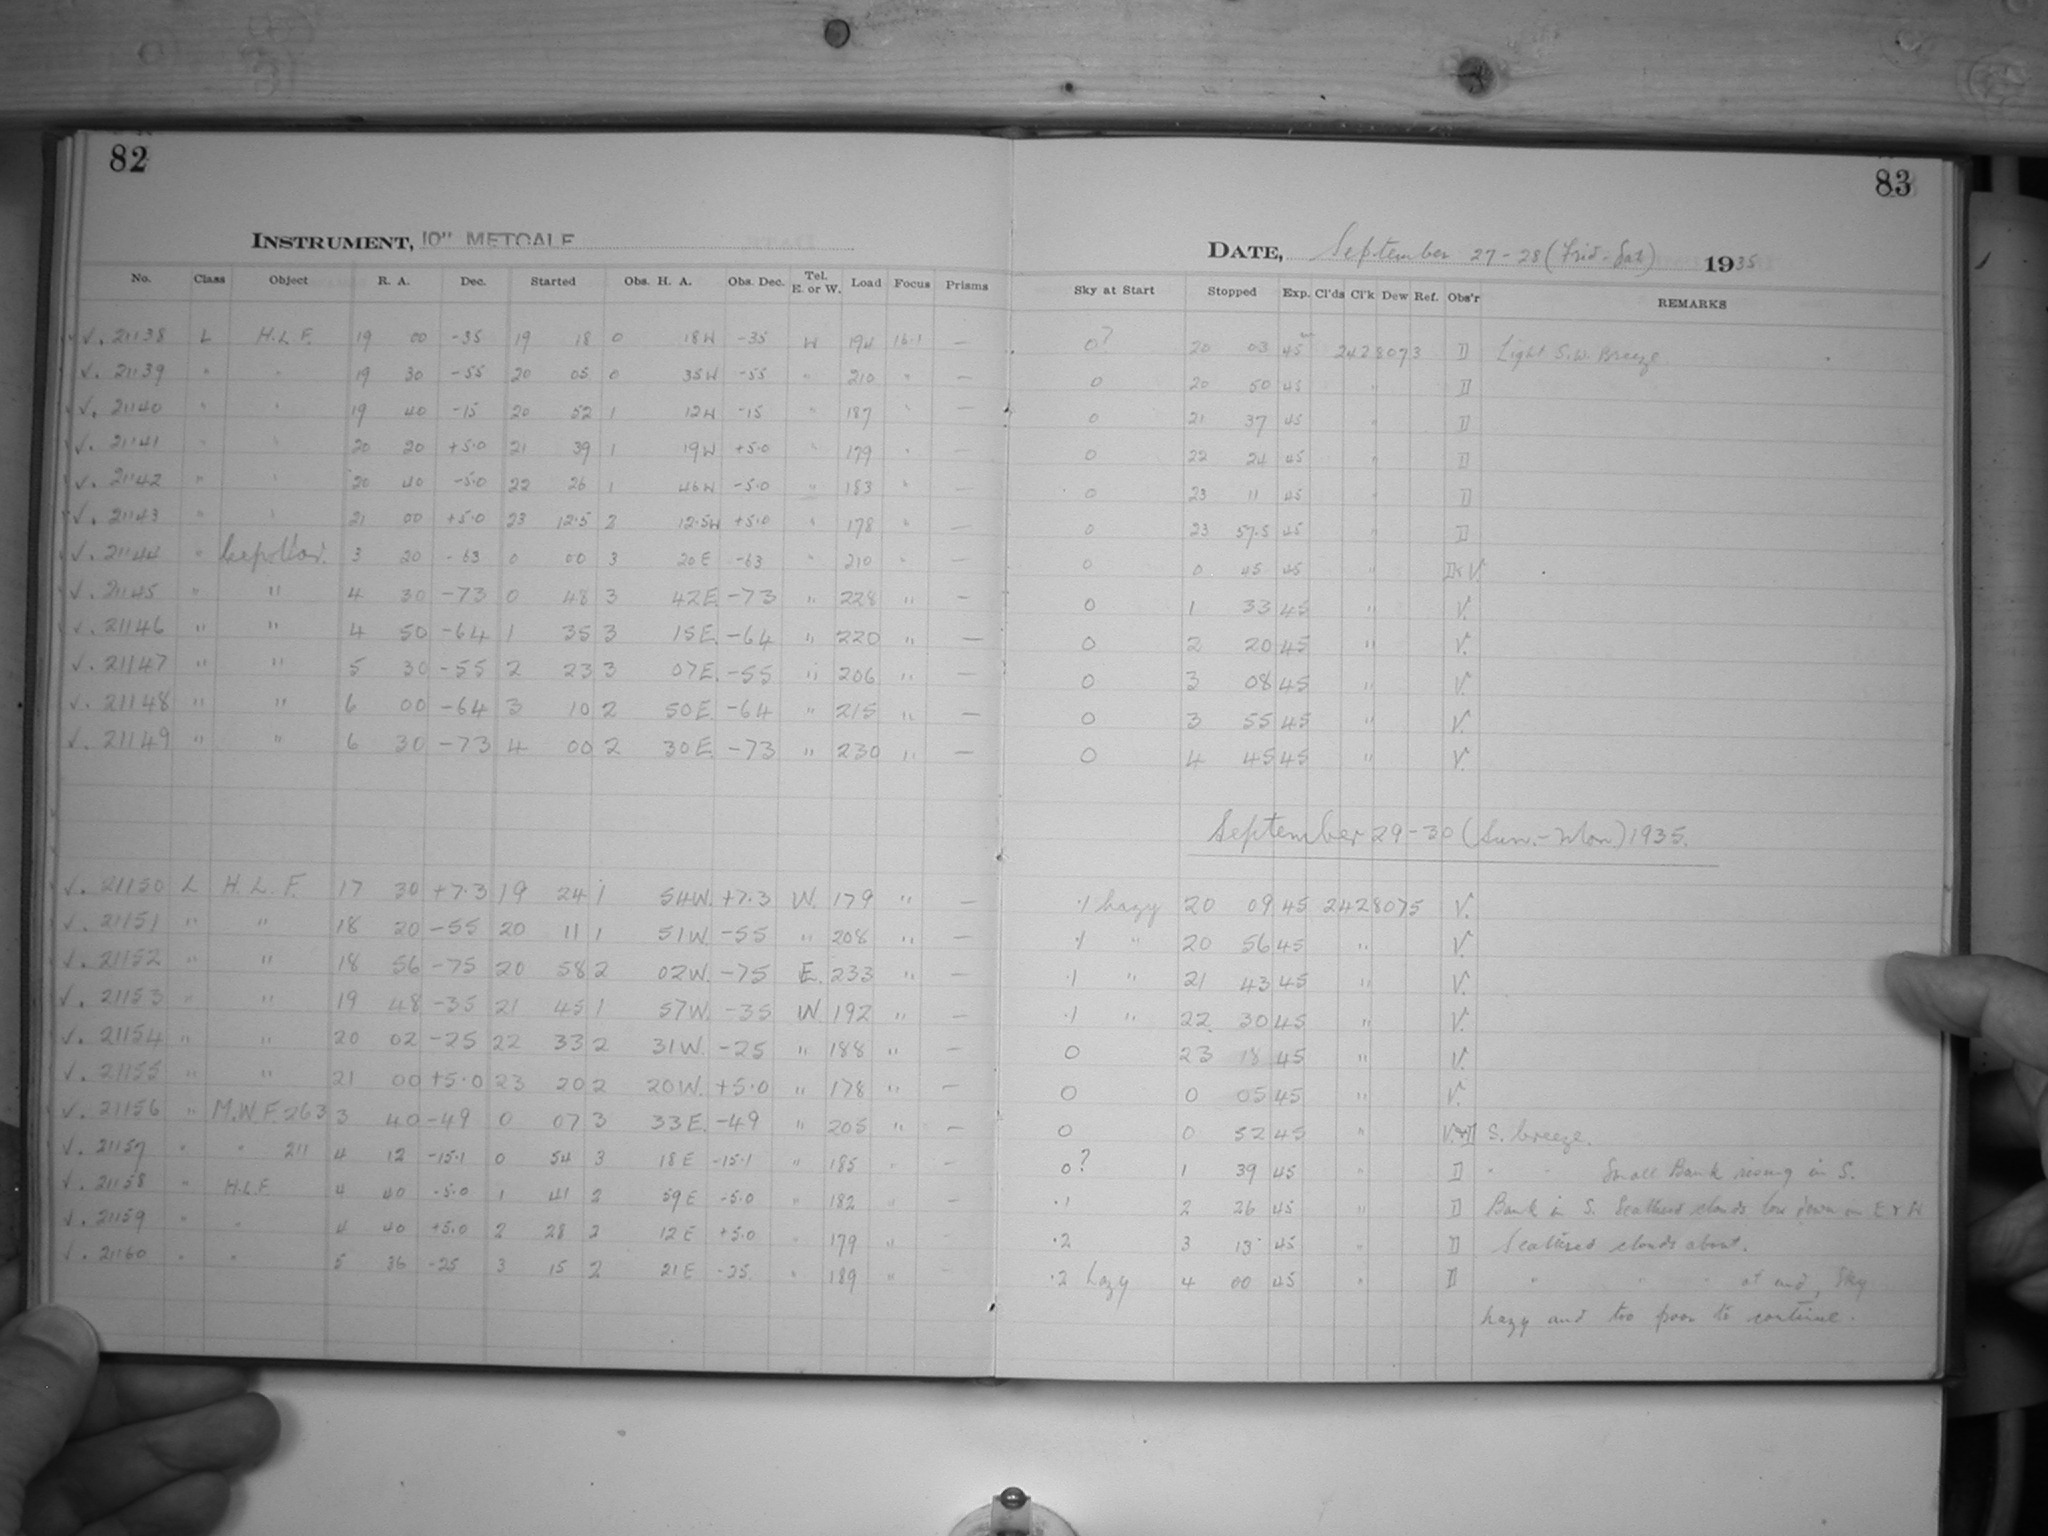 82
INSTRUMENT, 10" METCALF
No. Class Object R. A. Dec. Started Obs. H. A. Obs. Dec. Tel. E. or W. Load Focus Prisms
√. 21138 L H.L.F. 19 00 -35 19 18 0 18W -35 W 194 16.1 —
√. 21139 " " 19 30 -55 20 05 0 35W -55 " 210 " —
√. 21140 " " 19 40 -15 20 52 1 12W -15 " 187 " —
√. 21141 " " 20 20 +5.0 21 39 1 19W +5.0 " 179 " —
√. 21142 " " 20 40 -5.0 22 26 1 46W -5.0 " 183 " —
√. 21143 " " 21 00 +5.0 23 12.5 2 12.5W +5.0 " 178 " —
√. 21144 " 3 20 -63 0 00 3 20E -63 " 210 " —
√. 21145 " " 4 30 -73 0 48 3 42E. -73 " 228 " —
√. 21146 " " 4 50 -64 1 35 3 15E. -64 " 220 " —
√. 21147 " " 5 30 -55 2 23 3 07E. -55 " 206 " —
√. 21148 " " 6 00 -64 3 10 2 50E. -64 " 215 " —
√. 21149 " " 6 30 -73 4 00 2 30E. -73 " 230 " —
√. 21150 L H. L. F. 17 30 +7.3 19 24 1 54W. +7.3 W. 179 " —
√. 21151 " " 18 20 -55 20 11 1 51W. -55 " 208 " —
√. 21152 " " 18 56 -75 20 58 2 02W. -75 E. 233 " —
√. 21153 " " 19 48 -35 21 45 1 57W. -35 W. 192 " —
√. 21154 " " 20 02 -25 22 33 2 31W. -25 " 188 " —
√. 21155 " " 21 00 +5.0 23 20 2 20W. +5.0 " 178 " —
√. 21156 " M.W.F. 263 3 40 -49 0 07 3 33E. -49 " 205 " —
√. 21157 " " 211 4 12 -15.1 0 54 3 18E -15.1 " 185 " —
√. 21158 " H.L.F. 4 40 -5.0 1 41 2 59E -5.0 " 182 " —
√. 21159 " " 4 40 +5.0 2 28 2 12E +5.0 " 179 " —
√. 21160 " " 5 36 -25 3 15 2 21E -25 " 189 " —
83
DATE, September 27-28 (Frid-Sat) 1935
Sky at Start Stopped Exp. Cl'ds Cl'k Dew Ref. Obs'r REMARKS
0? 20 03 45 2428073 D Light S.W. Breeze.
0 20 50 45 " D
0 21 37 45 " D
0 22 24 45 " D
0 23 11 45 " D
0 23 57.5 45 " D
0 0 45 45 " D+V.
0 1 33 45 " V.
0 2 20 45 " V.
0 3 08 45 " V.
0 3 55 45 " V.
0 4 45 45 " V.
September 29-30 (Sun.-Mon.) 1935.
.1 hazy 20 09 45 2428075 V.
.1 " 20 56 45 " V.
.1 " 21 43 45 " V.
.1 " 22 30 45 " V.
0 23 18 45 " V.
0 0 05 45 " V.
0 0 52 45 " V.+D S. breeze.
0? 1 39 45 " D " " Small Bank rising in S.
.1 2 26 45 " D Bank in S. Scattered clouds low down in E & W
.2 3 13 45 " D Scattered clouds about.
.2 hazy 4 00 45 " D " " " at end, Sky
hazy and too poor to continue.